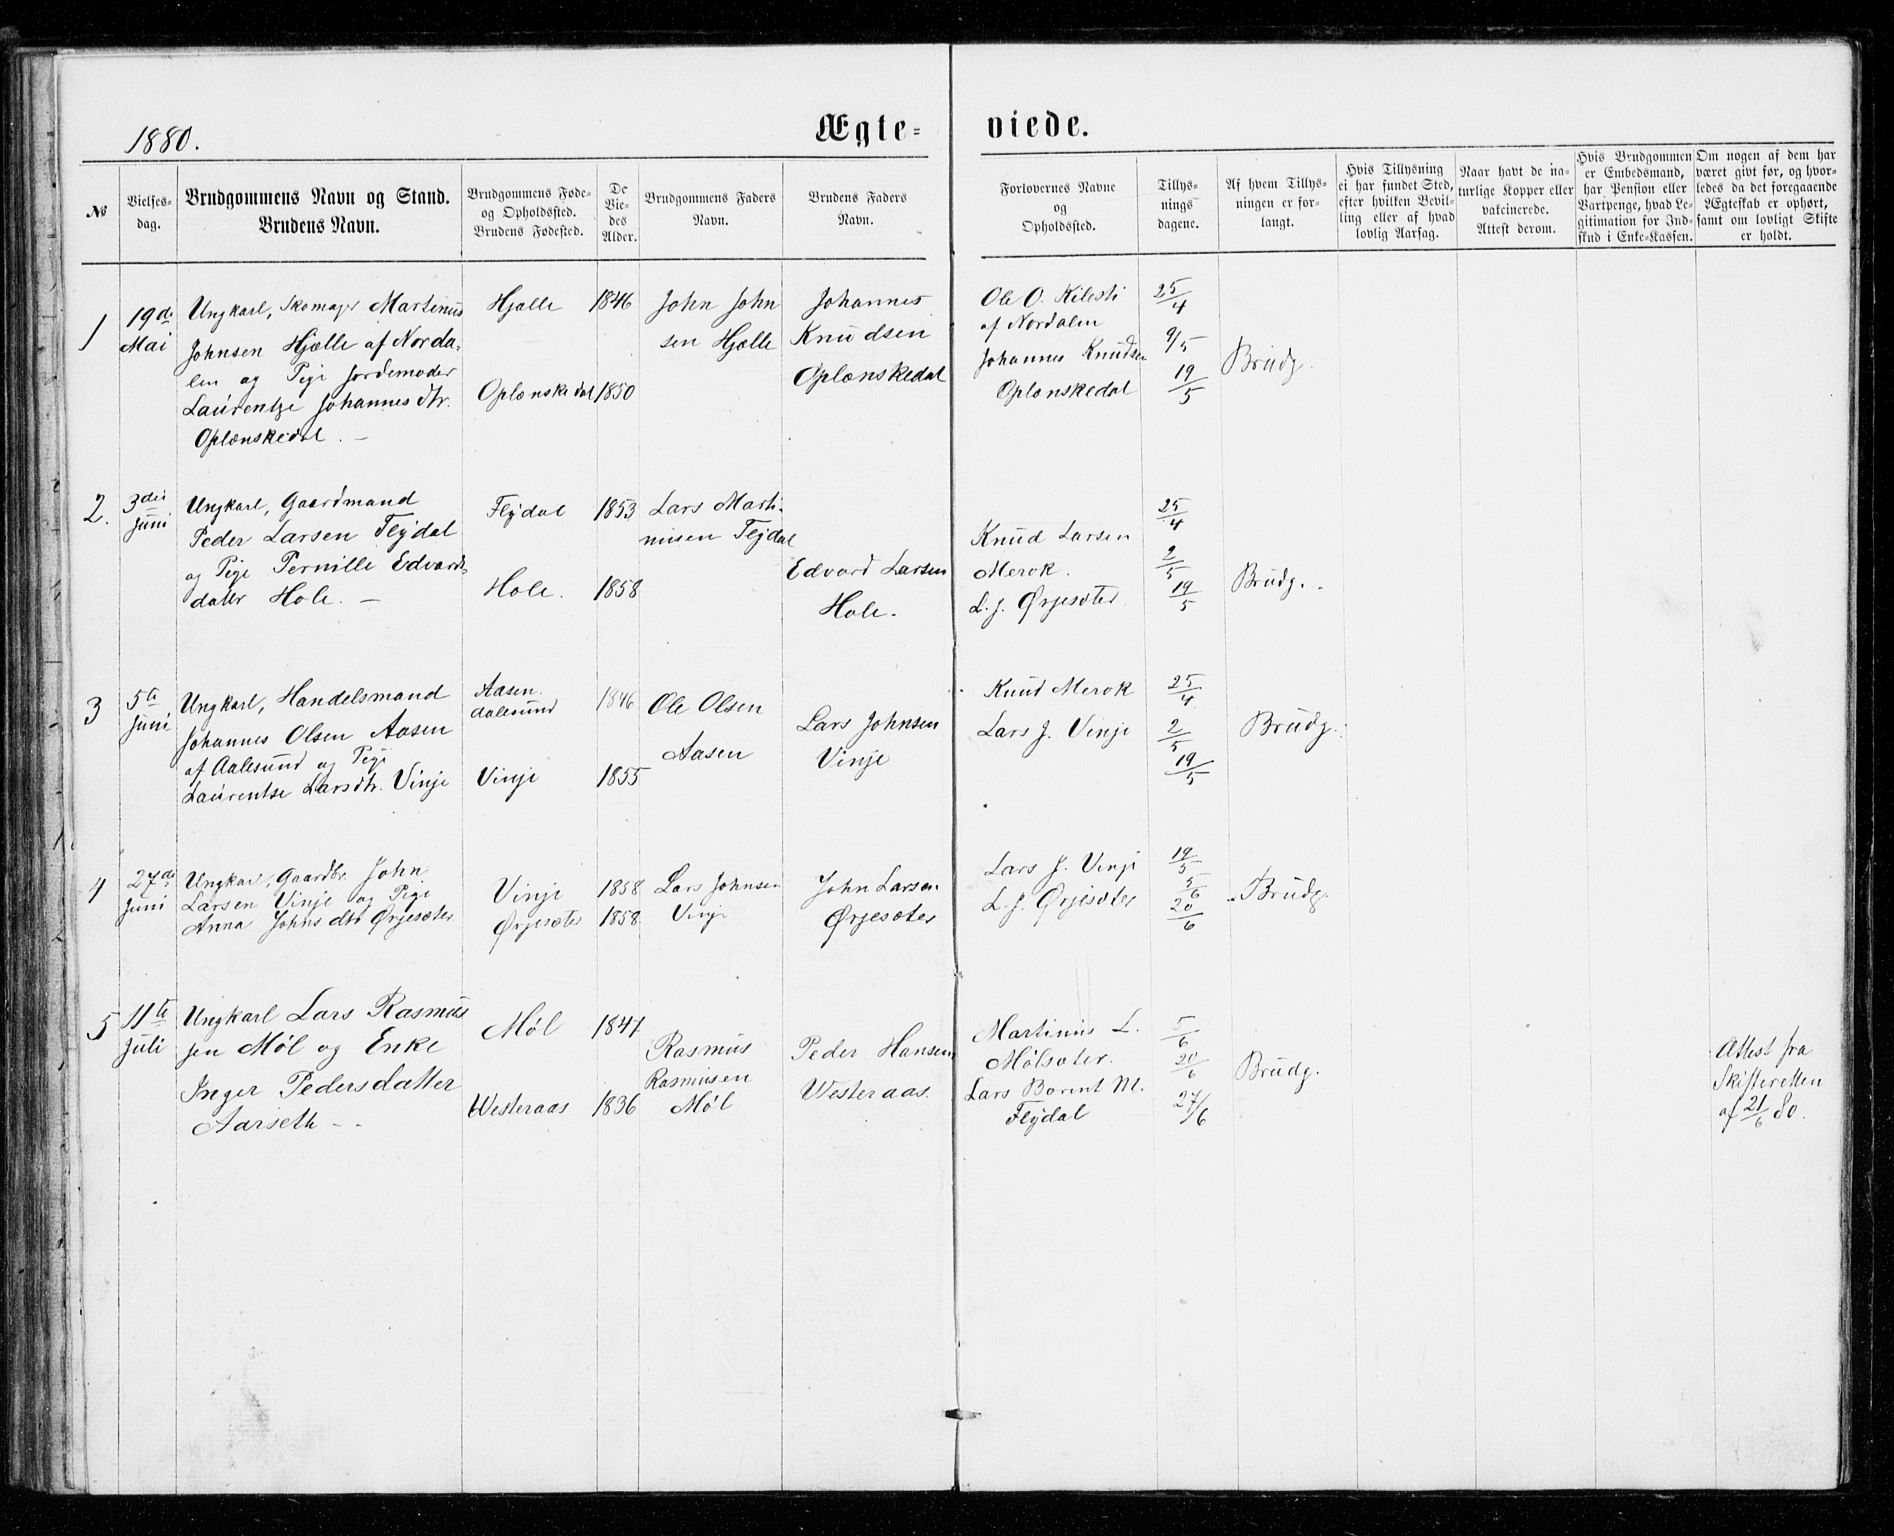 1880.
Ægte-
viede.
№
Vielses-
dag.
Brudgommens Navn og Stand.
Brudens Navn.
Brudgommens Føde-
og Opholdssted.
Brudens Fødested.
De
Vie-
des
Alder.
Brudgommens Faders
Navn.
Brudens Faders
Navn.
Forlovernes Navne
og
Opholdssted.
Tillys-
nings
dagene.
Af hvem Tillys-
ningen er for-
langt.
Hvis Tillysning
ei har fundet Sted,
efter hvilken Bevil-
ling eller af hvad
lovlig Aarsag.
Naar havt de na-
turlige Kopper eller
vakcinerede.
Attest derom.
Hvis Brudgommen
er Embedsmand,
har Pension eller
Vartpenge, hvad Le-
gitimation for Ind-
skud i Enke-Kassen.
Om nogen af dem har
været givt før, og hvor-
ledes da det foregaaende
Ægteskab er ophørt,
samt om lovligt Skifte
er holdt.
1
19de
Mai
Ungkarl, Skomager Martinus
Johnsen Hjelle af Norda-
len og Pige Jordemoder
Laurentze Johannesdtr.
Oplænskedal. —
Hjelle
Oplenskedal
1846
1850
John John
sen Hjelle
Johannes
Knudsen
Oplænskedal
Ole O. Kilesti
af Nordalen
Johannes Knudsen
Oplenskedal
25/4
9/5
19/5
Brudg.
2.
3die
Juni
Ungkarl, Gaardmand
Peder Larsen Flydal
og Pige Pernille Edvards-
datter Hole. —
Flydal
Hole.
1853
1858
Lars Marti-
nusen Flydal
Edvard Larsen
Hole.
Knud Larsen
Merok.
L. J. Ørjesæter
25/4
2/5
19/5
Brudg.
3
5te
Juni
Ungkarl, Handelsmand
Johannes Olsen Aasen
af Aalesund og Pige
Laurentse Larsdtr. Vinje
Aasen.
Aalesund
Vinje
1846
1855
Ole Olsen
Aasen
Lars Johnsen
Vinje
Knud Merok
Lars J. Vinje
25/4
2/5
19/5
Brudg.
4
27de
Juni
Ungkarl, Gaardbr. John
Larsen Vinje og Pige
Anna Johnsdtr Ørjesæter
Vinje
Ørjesæter
1858
1858
Lars Johnsen
Vinje
John Larsen
Ørjesæter
Lars J. Vinje
L. J. Ørjesæter
19/5
5/6
20/6
Brudg.
5
11te
Juli
Ungkarl Lars Rasmus
sen Møl og Enke
Inger Pedersdatter
Aarseth —
Møl
Westeraas
1847
1836
Rasmus
Rasmusen
Møl
Peder Hansen
Westeraas.
Martinus L.
Mølsæter.
Lars Berent M.
Flydal
5/6
20/6
27/6
Brudg.
Attest fra
Skifteretten
af 21/6 80.